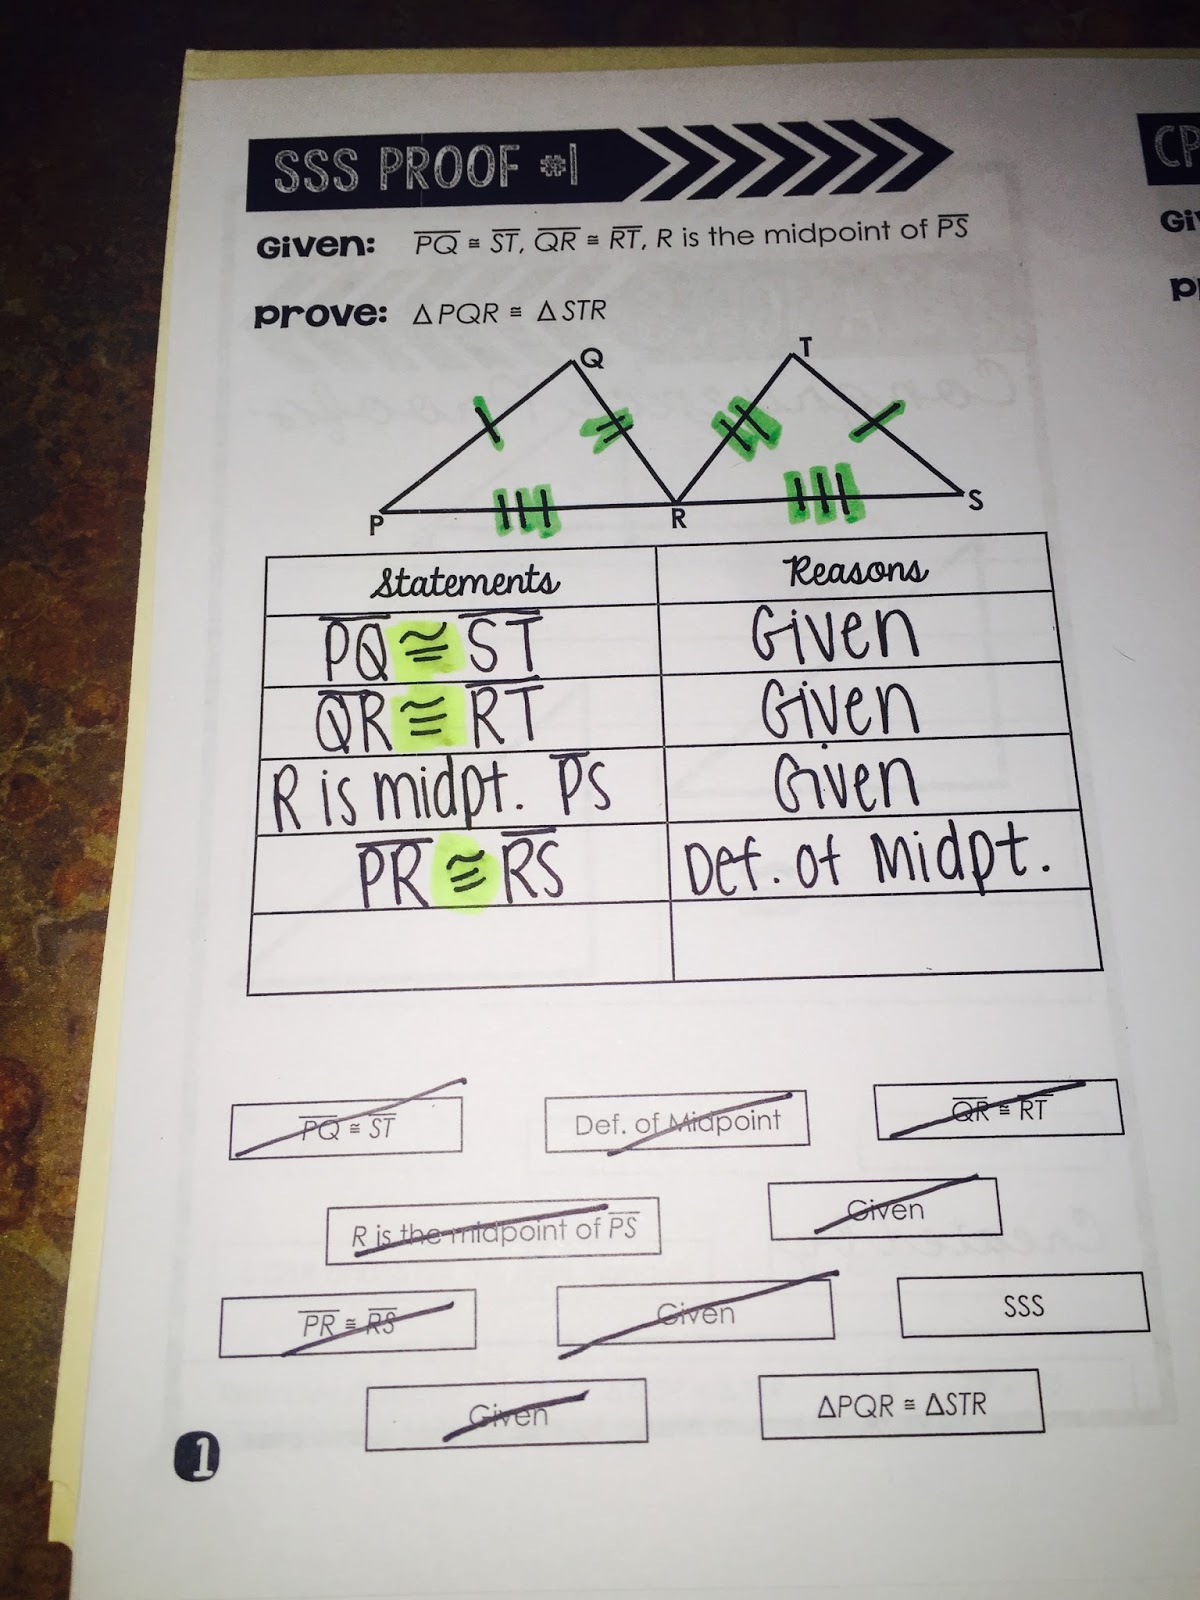 SSS PROOF #1
CP
Given: PQ ≅ ST, QR ≅ RT, R is the midpoint of PS
Gi
Prove: △PQR ≅ △STR
P
Q
T
P
R
S
Statements Reasons
PQ ≅ ST Given
QR ≅ RT Given
R is midpt. PS Given
PR ≅ RS Def. of Midpt.
PQ ≅ ST Def. of Midpoint QR ≅ RT
R is the midpoint of PS Given
PR ≅ RS Given SSS
Given △PQR ≅ △STR
1